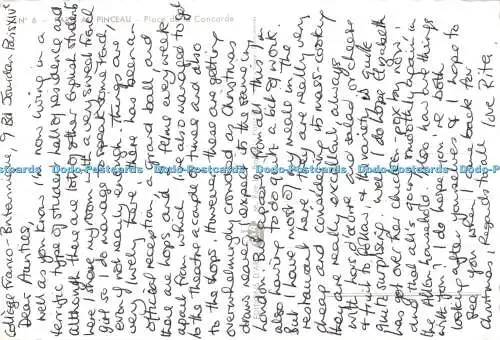 N° 6 - PINCEAU - Place de la Concorde
Collège Franco-Britannique, 9 Bd Jourdan Paris XIV
Dear Aunties,
Well as you know I'm now living in a
terrific type of student hall of residence and
although there are lots of other English students
here I share my room with a very sweet French
girl so I do manage to speak some French,
even if not nearly enough. Things are
very lively here - there has been an
official reception, a grand ball and
there are hops and films every week
apart from which I have also managed to get
to the theatre a couple of times and also
to the shops. However these are getting
overwhelmingly crowded as Christmas
draws nearer, I expect it's the same in
London. But apart from all this I'm
also having to do quite a bit of work.
But I have most of my meals in the
restaurant here. They are really very
cheap and considering its mass-cooking
they are really excellent, always
with hors d'oeuvre and salad or cheese
+ fruit to follow + the variety is quite
quite surprising. Well I do hope Elizabeth
has got over the chicken-pox by now,
and that all's going smoothly again in
the household. Also how are things
with you? I do hope you're both
looking after yourselves & I hope to
see you when I come back for
Christmas. Regards to all
love Rita.
Postcards Postcards Postcards Postcards Postcards Postcards